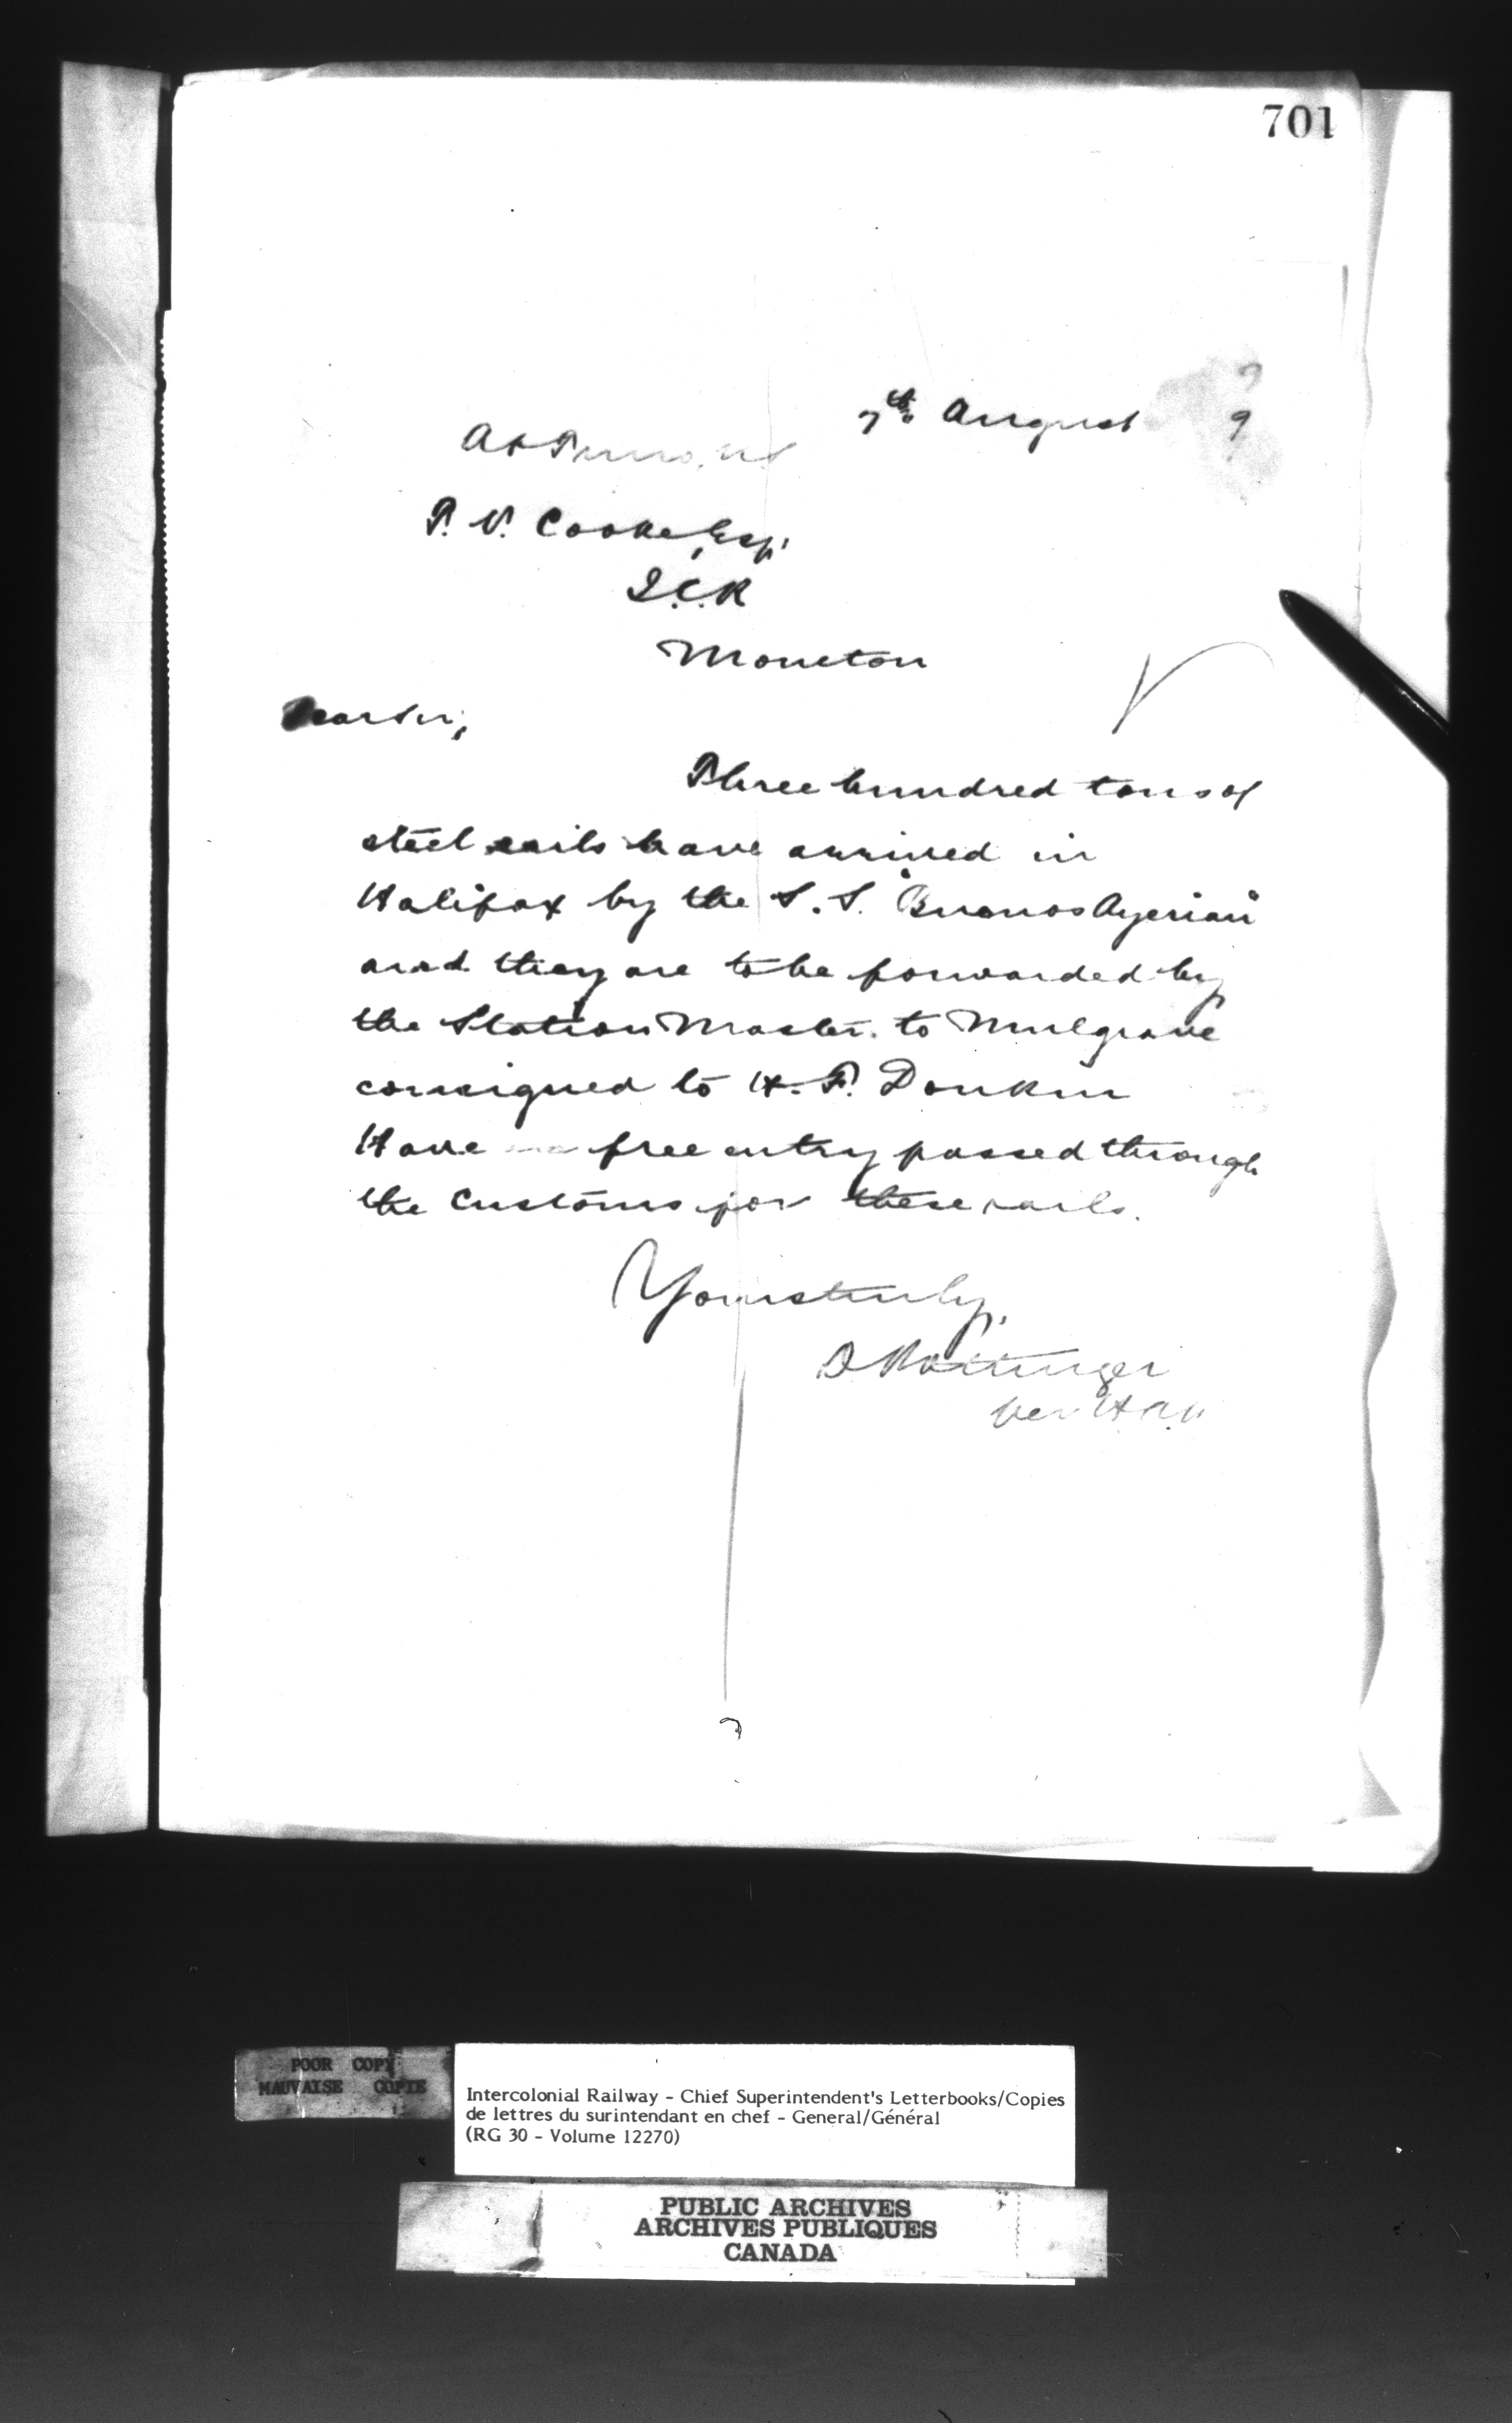 701
7th August 9
At Truro, N.S
T. V. Cooke, Esq.
I.C.R
Moncton
Dear Sir,
Three hundred tons of
steel rails have arrived in
Halifax by the S.S. "Buenos Ayerian"
and they are to be forwarded by
the Station Master. to Mulgrave
consigned to H. F. Donkin
Have free entry passed through
the Customs for these rails.
Yours truly,
D Pottinger
per
POOR COPY
MAUVAISE COPIE
Intercolonial Railway - Chief Superintendent's Letterbooks/Copies
de lettres du surintendant en chef - General/Général
(RG 30 - Volume 12270)
PUBLIC ARCHIVES
ARCHIVES PUBLIQUES
CANADA